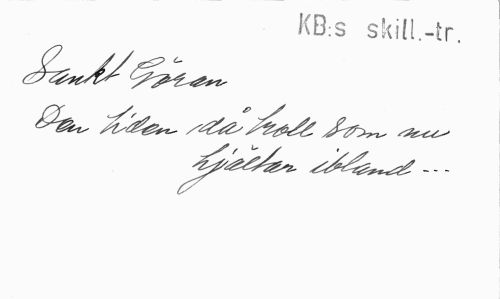 KB:s skill.-tr.
Sankt Göran
Den tiden då troll som nu
hjältar ibland ---